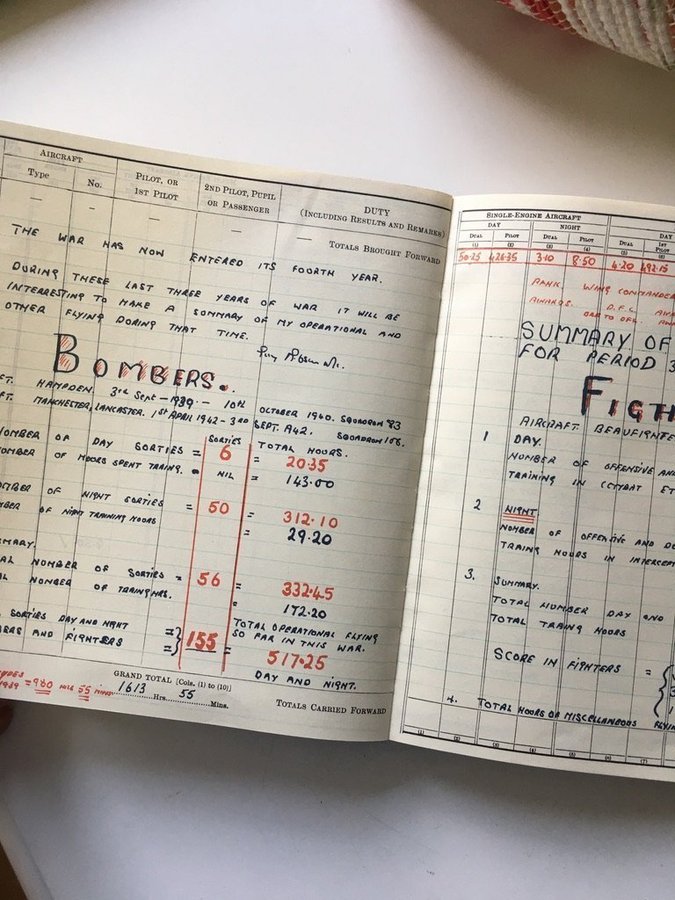 AIRCRAFT
Type
No.
PILOT, OR
1ST PILOT
2ND PILOT, PUPIL
OR PASSENGER
DUTY
(INCLUDING RESULTS AND REMARKS)
— — — — — TOTALS BROUGHT FORWARD
THE WAR HAS NOW ENTERED ITS FOURTH YEAR.
DURING THESE LAST THREE YEARS OF WAR IT WILL BE
INTERESTING TO MAKE A SUMMARY OF MY OPERATIONAL AND
OTHER FLYING DURING THAT TIME.
BOMBERS.
FT. HAMPDEN. 3rd Sept - 1939 - 10th OCTOBER 1940. SQUADRON '83
FT. MANCHESTER, LANCASTER. 1st APRIL 1942 - 3RD SEPT. 1942. SQUADRON 106.
SORTIES
TOTAL HOURS.
NUMBER OF DAY SORTIES = 6 = 20·35
NUMBER OF HOURS SPENT TRAING. = NIL = 143·00
NUMBER OF NIGHT SORTIES = 50 = 312·10
NUMBER OF NIGHT TRAINING HOURS = 29.20
MARY.
AL NUMBER OF SORTIES = 56 = 332·45
AL NUMBER OF TRAING HRS. 172·20
SORTIES DAY AND NIGHT
BERS AND FIGHTERS = 155 =
TOTAL OPERATIONAL FLYING
SO FAR IN THIS WAR.
517·25
DAY AND NIGHT.
TYPES
1939 = 980 HRS 55 MINS
GRAND TOTAL [Cols. (1) to (10)]
1613 Hrs. 55 Mins.
TOTALS CARRIED FORWARD
SINGLE-ENGINE AIRCRAFT
DAY NIGHT DAY
DUAL PILOT DUAL PILOT DUAL 1ST PILOT
(1) (2) (3) (4) (5) (6)
50·25 426·35 3·10 8·50 4·20 492·15
RANK. WING COMMANDER
AWARDS. D.F.C.
SUMMARY OF
FOR PERIOD 3
FIGTH
AIRCRAFT BEAUFIGHTE
1 DAY.
NUMBER OF OFFENSIVE AN
TRAINING IN COMBAT ET
2 NIGHT
NUMBER OF OFFENSIVE AND DE
TRAING HOURS IN INTERCEPT
3. SUMMARY.
TOTAL NUMBER DAY AND
TOTAL TRAING HOURS
SCORE IN FIGHTERS = {
4. TOTAL HOURS OF MISCELLANEOUS FLYIN
(1) (2) (3) (4) (5) (6) (7)